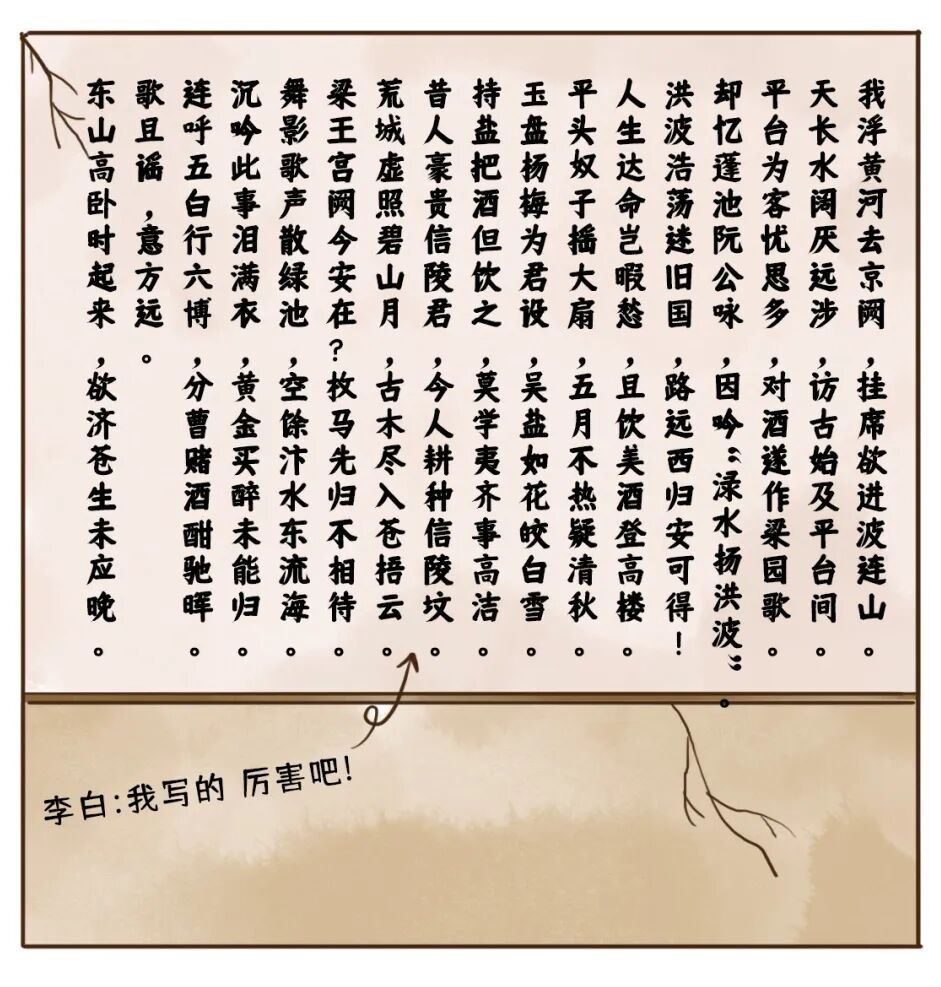 我浮黄河去京阙，挂席欲进波连山。
天长水阔厌远涉，访古始及平台间。
平台为客忧思多，对酒遂作梁园歌。
却忆蓬池阮公咏，因吟“渌水扬洪波”。
洪波浩荡迷旧国，路远西归安可得！
人生达命岂暇愁，且饮美酒登高楼。
平头奴子摇大扇，五月不热疑清秋。
玉盘杨梅为君设，吴盐如花皎白雪。
持盐把酒但饮之，莫学夷齐事高洁。
昔人豪贵信陵君，今人耕种信陵坟。
荒城虚照碧山月，古木尽入苍梧云。
梁王宫阙今安在？枚马先归不相待。
舞影歌声散绿池，空馀汴水东流海。
沉吟此事泪满衣，黄金买醉未能归。
连呼五白行六博，分曹赌酒酣驰晖。
歌且谣，意方远。
东山高卧时起来，欲济苍生未应晚。
李白：我写的 厉害吧！